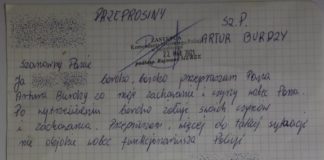 PRZEPROSINY
SZ. P.
ARTUR BURDZY
Szanowny Panie
Ja bardzo, bardzo przepraszam Pana
Artura Burdzy za moje zachowanie i czyny wobec Pana.
Po wytrzeźwieniu bardzo żałuję swoich czynów
i zachowania. Przepraszam, więcej do takiej sytuacji
nie dojdzie wobec funkcjonariusza Policji